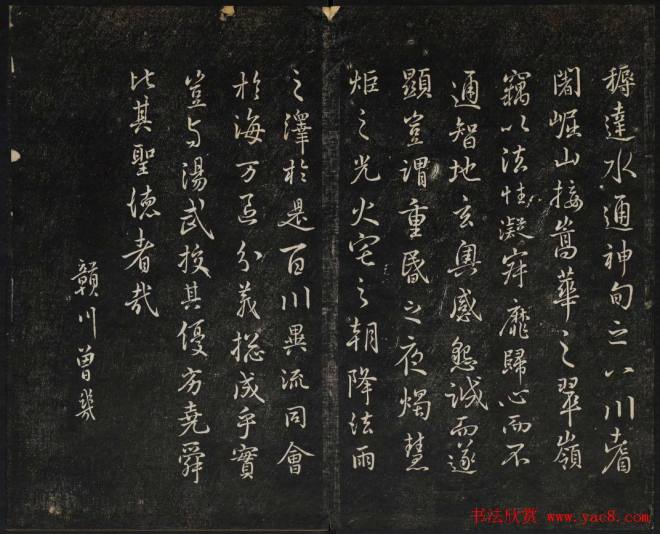 耨達水通神甸之八川耆
闍崛山接嵩華之翠嶺
竊以法性凝寂靡歸心而不
通智地玄奧感懇誠而遂
顯豈謂重昏之夜燭慧
炬之光火宅之朝降法雨
之澤於是百川異流同會
於海万區分義揔成乎實
豈与湯武挍其優劣堯舜
比其聖德者哉
贛川曾幾
书法欣赏 www.yac8.com